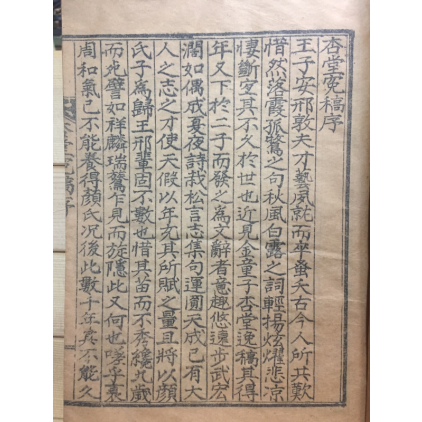 杏堂寃稿序
王子安邢敦夫才藝夙就而卒蚤夭古今人所共歎
惜然落霞孤騖之句秋風白露之詞輕揚炫燿悲凉
悽斷宜其不久於世也近見金童子杏堂逸稿其得
年又下於二子而發之為文辭者意趣悠遠步武宏
濶如偶成夏夜詩栽松言志集句運圓天成已有大
人之志之才使天假以年充其所賦之量且將以顔
氏子為歸王邢輩固不數也惜其苗而不秀纔九歲
而死譬如祥麟瑞鸑乍見而旋隱此又何也嗟乎衰
周和氣已不能養得顔氏況後此數千年其不能久